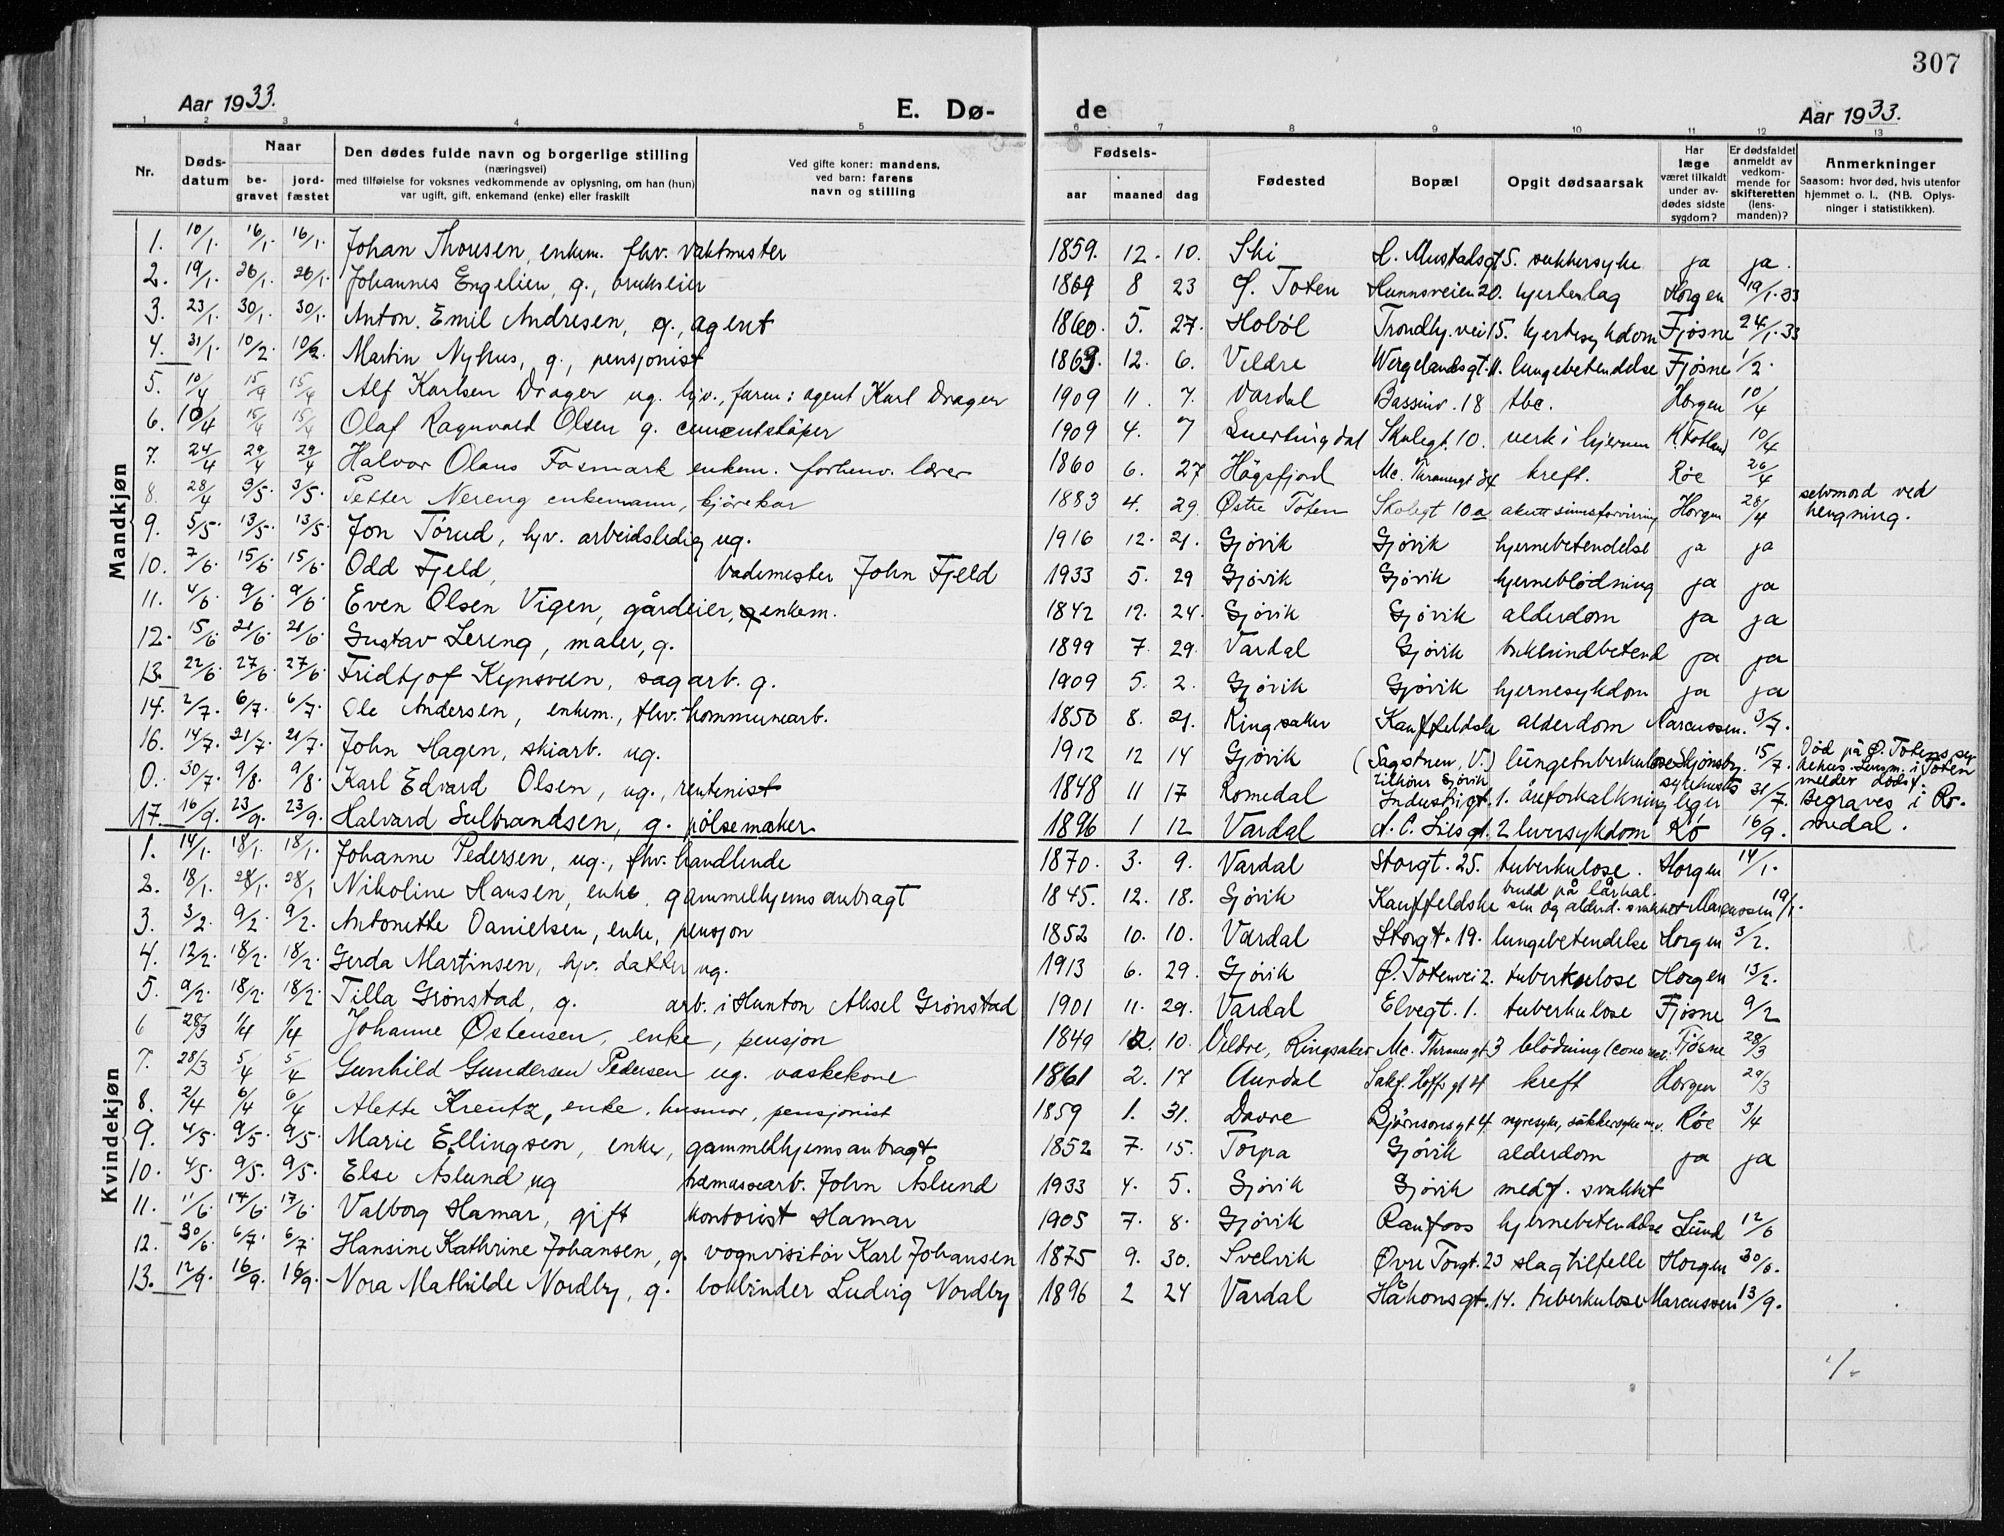 307
Aar 1933. E. Dø- de Aar 1933.
1 2 3 4 5 6 7 8 9 10 11 12 13
Nr. Døds-datum Naar be-gravet jord-fæstet Den dødes fulde navn og borgerlige stilling (næringsvei) med tilføielse for voksnes vedkommende av oplysning, om han (hun) var ugift, gift, enkemand (enke) eller fraskilt Ved gifte koner: mandens, ved barn: farens navn og stilling Fødsels- aar maaned dag Fødested Bopæl Opgit dødsaarsak Har læge været tilkaldt under av-dødes sidste sygdom? Er dødsfaldet anmeldt av vedkom-mende for skifteretten (lens-manden)? Anmerkninger Saasom: hvor død, hvis utenfor hjemmet o. l., (NB. Oplys-ninger i statistikken).
Mandkjøn
1. 10/1. 16/1. 16/1. Johan Thoresen, enkem. fhv. vaktmester 1859. 12. 10. Ski H. Mustadsgt 5. sukkersyke ja ja.
2. 19/1. 26/1. 26/1. Johannes Engelien, g., brukseier 1869 8 23 Ø. Toten Hunnsveien 20. hjerteslag Horgen 19/1.33
3. 23/1. 30/1. 30/1. Anton Emil Andresen, g., agent 1860. 5. 27. Hobøl Trondhj.vei 15. hjertesykdom Fjøsne 24/1.33
4. 31/1. 10/2. 10/2. Martin Nyhus, g., pensjonist 1863. 12. 6. Veldre Wergelandsgt. 11. lungebetendelse Fjøsne 1/2.
5. 10/4 15/4 15/4 Alf Karlsen Drager ug. hjv., faren: agent Karl Drager 1909 11. 7. Vardal Bassinv. 18 tbc. Horgen 10/4
6. 10/4 15/4 15/4 Olaf Ragnvald Olsen g. cementstøper 1909 4. 7 Snertingdal Skolegt. 10. verk i hjernen K. Fotland 10/4
7. 24/4 29/4 29/4 Halvor Olaus Fosmark enkem. forhenv. lærer 1860 6. 27 Høgsfjord Mc. Thranesgt 34 kreft. Røe 26/4
8. 28/4 3/5. 3/5. Petter Nereng enkemann, kjørekar 1883 4. 29. Østre Toten Skolegt 10a akutt sinnsforvirring Horgen 28/4 selvmord ved hengning.
9. 5/5. 13/5. 13/5. Jon Tørud, hjv. arbeidsledig ug. 1916 12. 21. Gjøvik Gjøvik hjernebetendelse ja ja
10. 7/6. 15/6 15/6. Odd Fjeld, bademester John Fjeld 1933 5. 29 Gjøvik Gjøvik hjerneblødning ja ja
11. 4/6. 9/6. 9/6. Even Olsen Vigen, gårdeier, enkem. 1842 12. 24. Gjøvik Gjøvik alderdom ja ja
12. 15/6. 21/6. 21/6. Gustav Lereng, maler, g. 1899 7. 29. Vardal Gjøvik bukhindbetend ja ja
13. 22/6. 27/6. 27/6. Fridtjof Kynsveen, sagarb. g. 1909 5. 2. Gjøvik Gjøvik hjernesykdom ja ja
14. 2/7. 6/7. 6/7. Ole Andersen, enkem., fhv. kommunearb. 1850 8. 21. Ringsaker Kauffeldske alderdom Marcussen. 3/7.
16. 14/7. 21/7. 21/7. John Hagen, skiarb. ug. 1912 12 14 Gjøvik (Sagstuen, V.) tilhører Gjøvik lungetuberkulose Skjønsby. 15/7. Død på Ø. Totens sykehus. Lensm. i Toten melder dødsf.
0. 30/7. 9/8. 9/8. Karl Edvard Olsen, ug., rentenist 1848 11 17 Romedal Industrigt. 1. åreforkalkning sykehusets læge 31/7. Begraves i Romedal.
17. 16/9. 23/9. 23/9. Halvard Gulbrandsen, g. pølsemaker 1896 1 12 Vardal A. C. Liesgt. 2 leversykdom Rø 16/9.
Kvindekjøn
1. 14/1. 18/1. 18/1. Johanne Pedersen, ug., fhv. handlende 1870. 3. 9. Vardal Storgt. 25. tuberkulose. Horgen 14/1.
2. 18/1. 28/1. 28/1 Nikoline Hansen, enke, gammelhjemsantragt 1845. 12. 18. Gjøvik Kauffeldske brudd på lårhalsen og alderd. svakhet Marcussen 19/1.
3. 3/2. 9/2. 9/2. Antonette Danielsen, enke, pensjon 1852 10. 10. Vardal Storgt. 19. lungebetendelse Horgen 3/2.
4. 12/2. 18/2. 18/2. Gerda Martinsen, hjv. datter ug. 1913 6. 29. Gjøvik Ø. Totenvei 2. tuberkulose Horgen 13/2.
5. 9/2. 18/2. 18/2. Tilla Grønstad, g. arb. i Hunton Aksel Grønstad 1901 11. 29. Vardal Elvegt. 1. tuberkulose Fjøsne 9/2
6 28/3 1/4 1/4 Johanne Østensen, enke, pensjon 1849 12. 10. Veldre, Ringsaker Mc. Thranesgt 3 blødning Fjøsne 28/3
7. 28/3 5/4 5/4 Gunhild Gundersen Pedersen ug. vaskekone 1861 2. 17 Aurdal Jakf. Hoffsgt 4 kreft Horgen 29/3
8. 2/4 6/4 6/4 Alette Kreutz, enke. husmor, pensjonist 1859 1. 31. Dovre Bjørnsonsgt 4 nyresyke, sukkersyke m.v. Røe 3/4
9. 4/5. 9/5. 9/5. Marie Ellingsen, enke, gammelhjemsantragt 1852 7. 15. Torpa Gjøvik alderdom ja ja
10. 4/5. 9/5. 9/5. Else Åslund ug hemassearb. John Åslund 1933 4. 5. Gjøvik Gjøvik medf. svakhet
11. 11/6. 17/6. 17/6. Valborg Hamar, gift kontorist Hamar 1905 7. 8. Gjøvik Raufoss hjernebetendelse Lund 12/6
12. 30/6. 6/7. 6/7. Hansine Kathrine Johansen, g. vognvisitør Karl Johansen 1875 9. 30. Svelvik Øvre Torgt. 23 slagtilfelle Horgen 30/6.
13. 12/9. 16/9. 16/9. Nora Mathilde Nordby, g. bokbinder Ludvig Nordby 1896 2 24 Vardal Håkonsgt. 14. tuberkulose Marcussen 13/9.